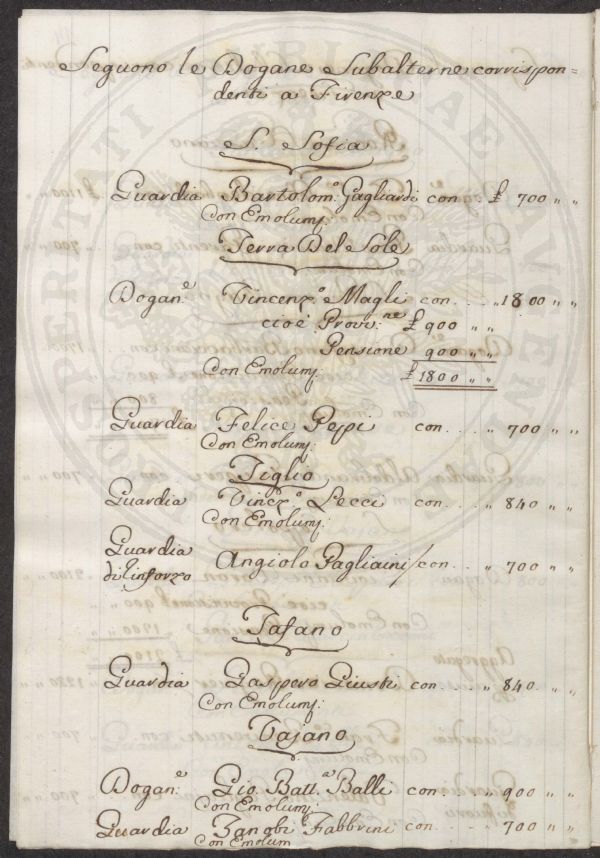 Seguono le Dogane Subalterne corrispon=
denti a Firenze
S. Sofia
Guardia Bartolom.º Gagliardi con . . £ 700 " "
Con Emolumj:
Terra Del Sole
Dogan.e Vincenz.º Magli con . . . " 1800 " "
cioè Provv.ne £ 900 " "
Pensione 900 " "
Con Emolumj: £ 1800 " "
Guardia Felice Pepi con . . . . " 700 " "
Con Emolumj:
Tiglio
Guardia Vincz.º Lecci con . . . " 840 " "
Con Emolumj:
Guardia
di Rinforzo Angiolo Pagliaini / con . . " 700 " "
Tafano
Guardia Gaspero Giusti con . . . " 840 . " "
Con Emolumj:
Tajano
Dogan.e Gio. Batt.a Balli con . . . " 900 " "
Con Emolumj:
Guardia Zanobi Fabbrini con . . . " 700 " "
Con Emolum